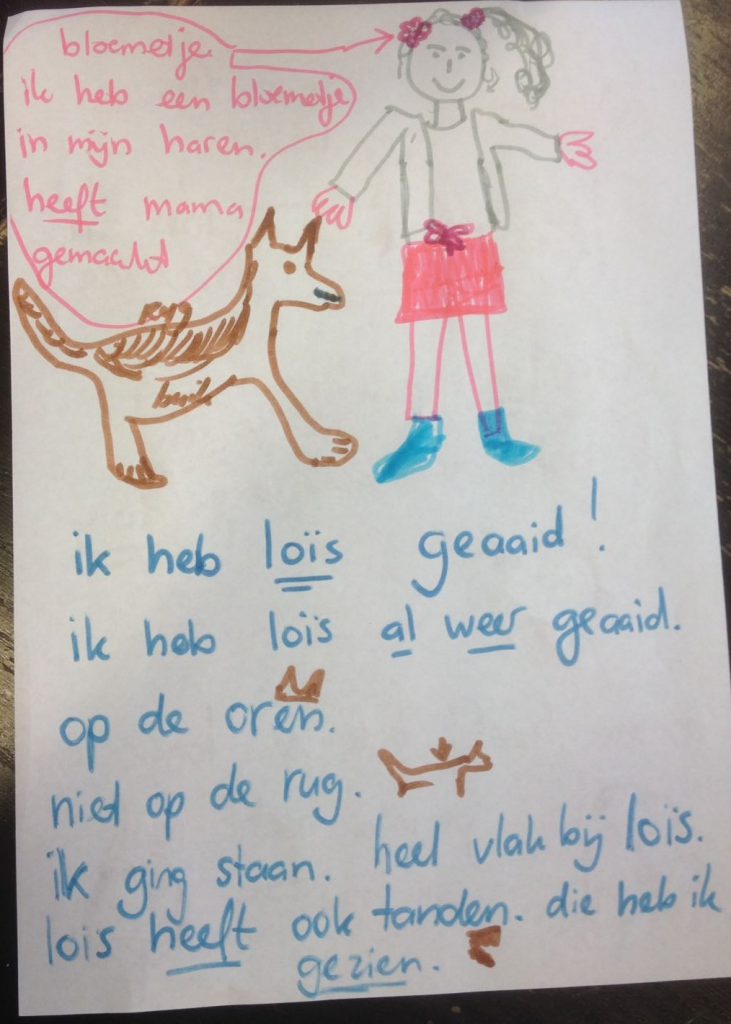 bloemetje.
ik heb een bloemetje
in mijn haren.
heeft mama
gemaakt
rug
buik
ik heb loïs geaaid!
ik heb loïs al weer geaaid.
op de oren.
niet op de rug.
ik ging staan. heel vlak bij loïs.
lois heeft ook tanden. die heb ik
gezien.